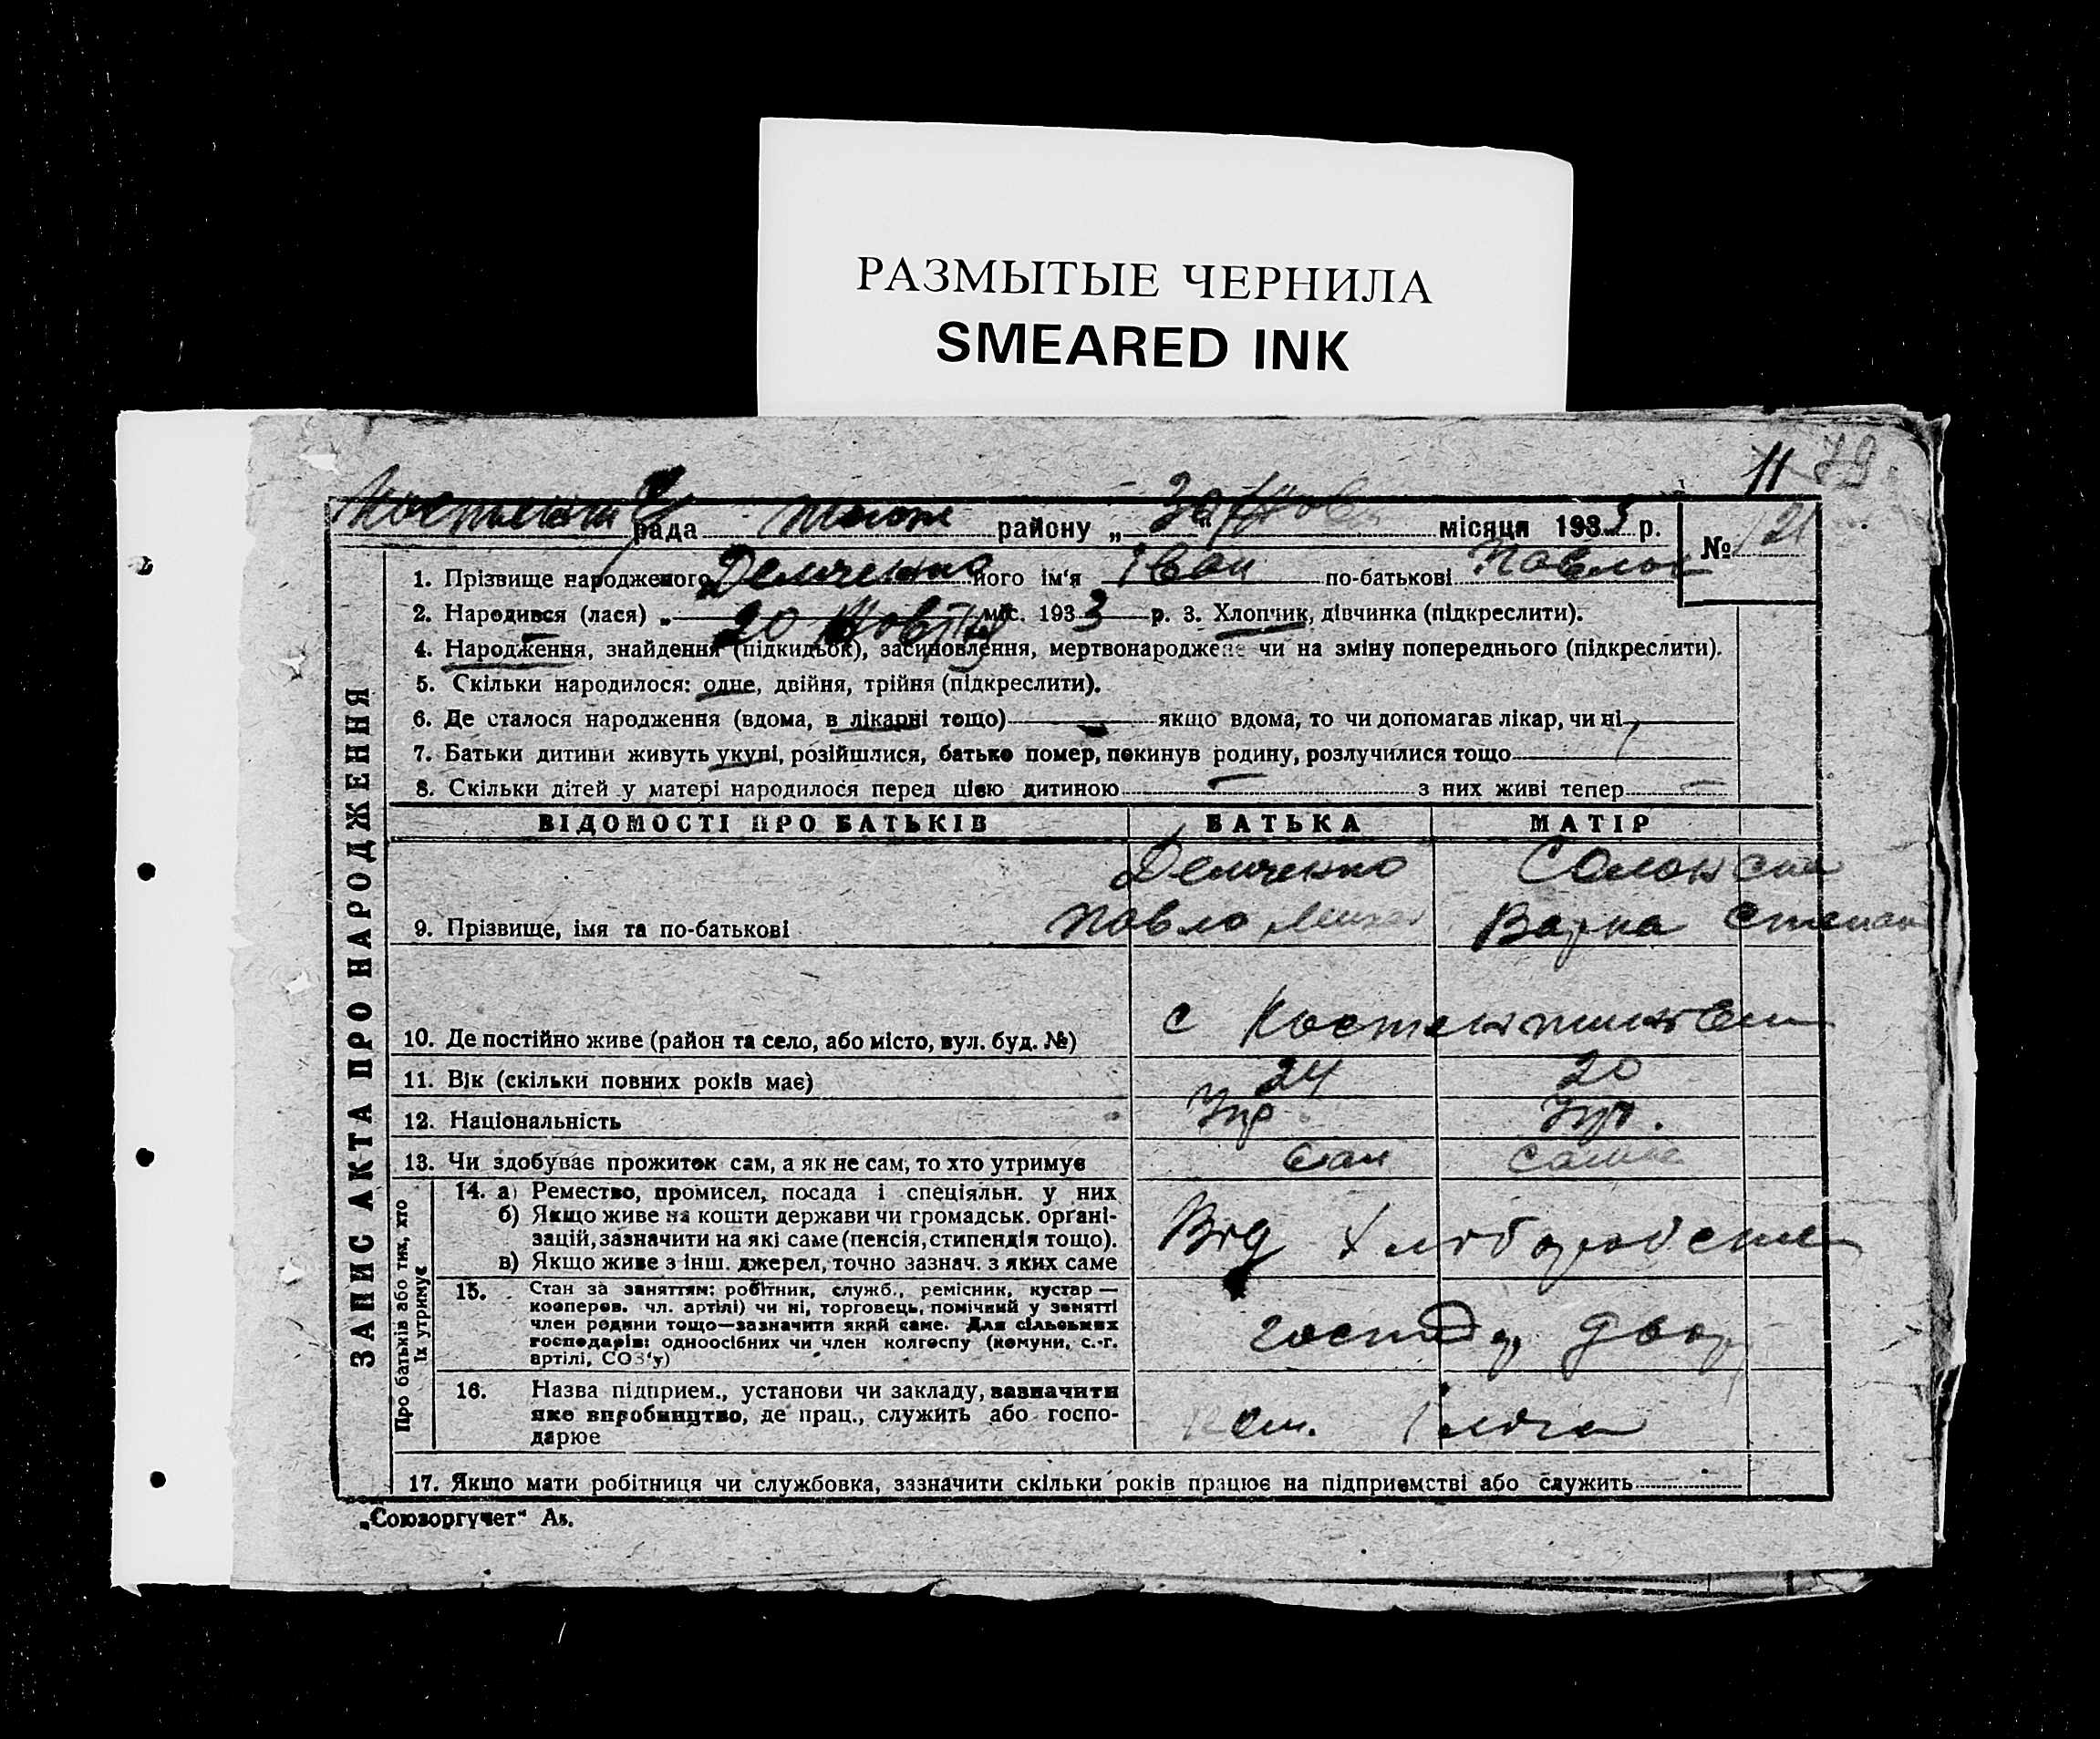 РАЗМЫТЫЕ ЧЕРНИЛА
SMEARED INK
11 79
рада району „30“ місяця 1933 р. № 21
ЗАПИС АКТА ПРО НАРОДЖЕННЯ
1. Прізвище народженого Демченко його ім‘я Іван по-батькові Павлов
2. Народився (лася) „ 20 Жовтня міс. 1933 р. 3. Хлопчик, дівчинка (підкреслити).
4. Народження, знайдення (підкидьок), засиновлення, мертвонароджене чи на зміну попереднього (підкреслити).
5. Скільки народилося: одне, двійня, трійня (підкреслити).
6. Де сталося народження (вдома, в лікарні тощо) якщо вдома, то чи допомагав лікар, чи ні
7. Батьки дитини живуть укупі, розійшлися, батько помер, покинув родину, розлучилися тощо
8. Скільки дітей у матері народилося перед цією дитиною – з них живі тепер –
ВІДОМОСТІ ПРО БАТЬКІВ БАТЬКА МАТІР
Демченко
9. Прізвище, імя та по-батькові Павло Варка Степан
10. Де постійно живе (район та село, або місто, вул. буд. №) с
11. Вік (скільки повних років має) 24 20
12. Національність Укр Укр.
13. Чи здобуває прожиток сам, а як не сам, то хто утримує сам сама
Про батьків або тих, хто
їх утримує
14. а) Ремество, промисел, посада і спеціяльн. у них
б) Якщо живе на кошти держави чи громадськ. органі-
зацій, зазначити на які саме (пенсія, стипендія тощо).
в) Якщо живе з інш. джерел, точно зазнач. з яких саме
Від
15. Стан за заняттям: робітник, служб., ремісник, кустар —
кооперов. чл. артілі) чи ні, торговець, помічний у занятті
член родини тощо—зазначити який саме. Для сільських
господарів: одноосібних чи член колгоспу (комуни, с.-г.
артілі, СОЗ‘у)
двор
16. Назва підприєм., установи чи закладу, зазначити
яке виробництво, де прац., служить або госпо-
дарює
17. Якщо мати робітниця чи службовка, зазначити скільки років працює на підприємстві або служить
„Союзоргучет“